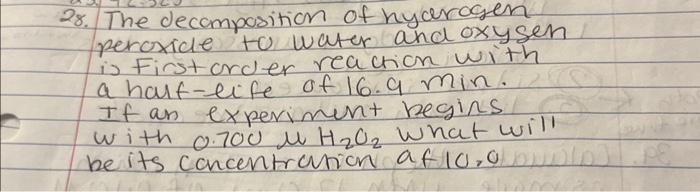 28. The decomposition of hydrogen
peroxide to water and oxygen
is first order reaction with
a half-life of 16.9 min.
If an experiment begins
with 0.700 M H₂O₂ what will
be its concentration af 10.0